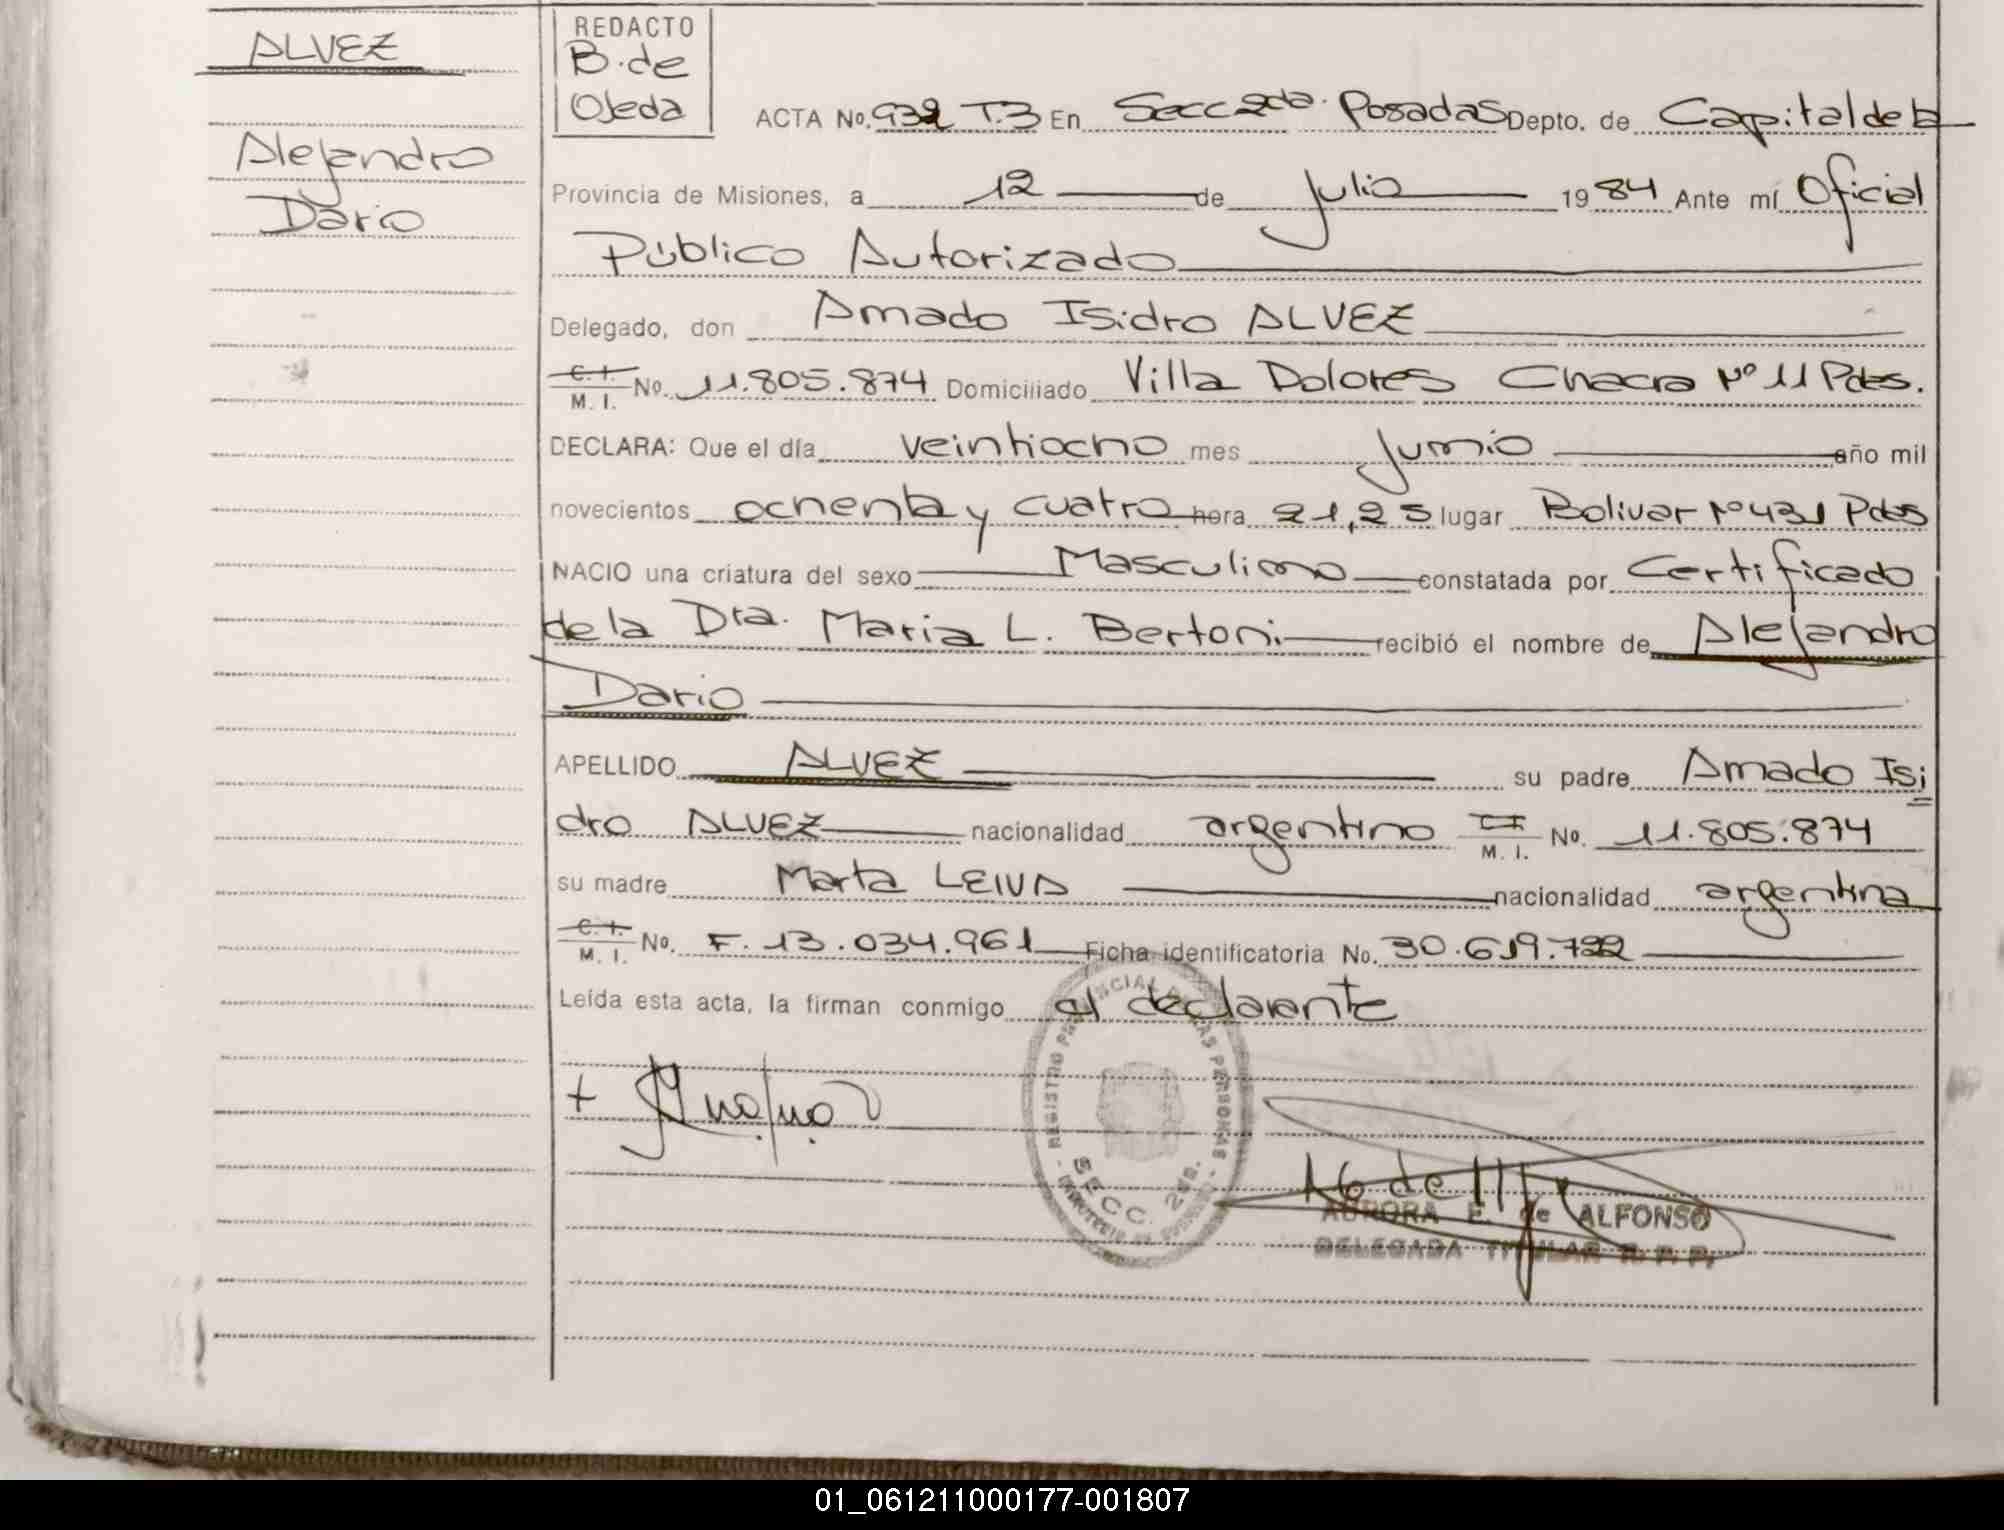 ALVEZ
Alejandro
Dario
REDACTO
B. de
Ojeda
ACTA No. 932 T.3 En Secc 2da. Posadas Depto. de Capital de la
Provincia de Misiones, a 12 de Julio 1984 Ante mí Oficial
Público Autorizado
Delegado, don Amado Isidro ALVEZ
C. I. M. I. No. 11.805.874 Domiciliado Villa Dolores Chacra Nº 11 Pdas.
DECLARA: Que el día veintiocho mes Junio año mil
novecientos ochenta y cuatro hora 21,25 lugar Bolivar Nº 431 Pdas
NACIO una criatura del sexo Masculino constatada por Certificado
de la Dra. Maria L. Bertoni recibió el nombre de Alejandro
Dario
APELLIDO ALVEZ su padre Amado Isi
dro ALVEZ nacionalidad argentino C I M. I. No. 11.805.874
su madre Marta LEIVA nacionalidad argentina
C. I. M. I. No. F. 13.034.961 Ficha identificatoria No. 30.619.722
Leída esta acta, la firman conmigo el declarante
REGISTRO PROVINCIAL DE LAS PERSONAS
SECC. 2da.
AURORA E. de ALFONSO
DELEGADA TITULAR R. P. P.
01_061211000177-001807